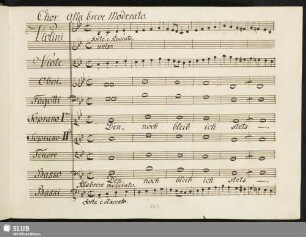 Chor Alla breve Moderato.
Violini
forte e staccato
unisoni
Viole
Oboi.
Fagotti
Soprano I
Den, noch bleib ich stets
Soprano II
Tenore
Basso
Den, noch bleib ich stets
Alla breve moderato.
Bassi
forte e staccato.
SLUB